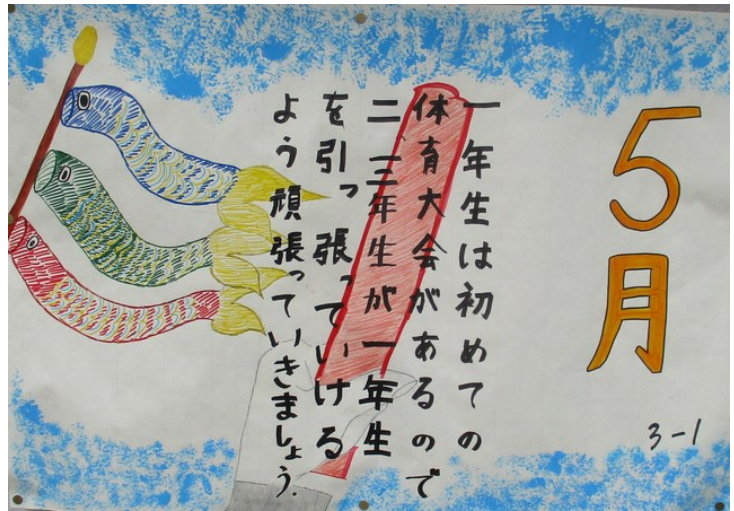 5月
一年生は初めての
体育大会があるので
二三年生が一年生
を引っ張っていける
よう頑張っていきましょう.
3-1